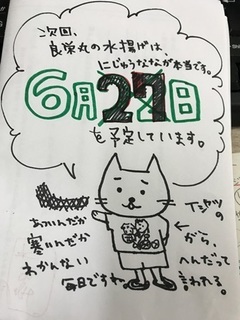 次回、
良栄丸の水揚げは、
にじゅうななが本当です。
6月27日
を予定しています。
あついんだか
寒いんだか
わかんない
毎日ですね。
Tシャツの
がら、
へんだって
言われる。